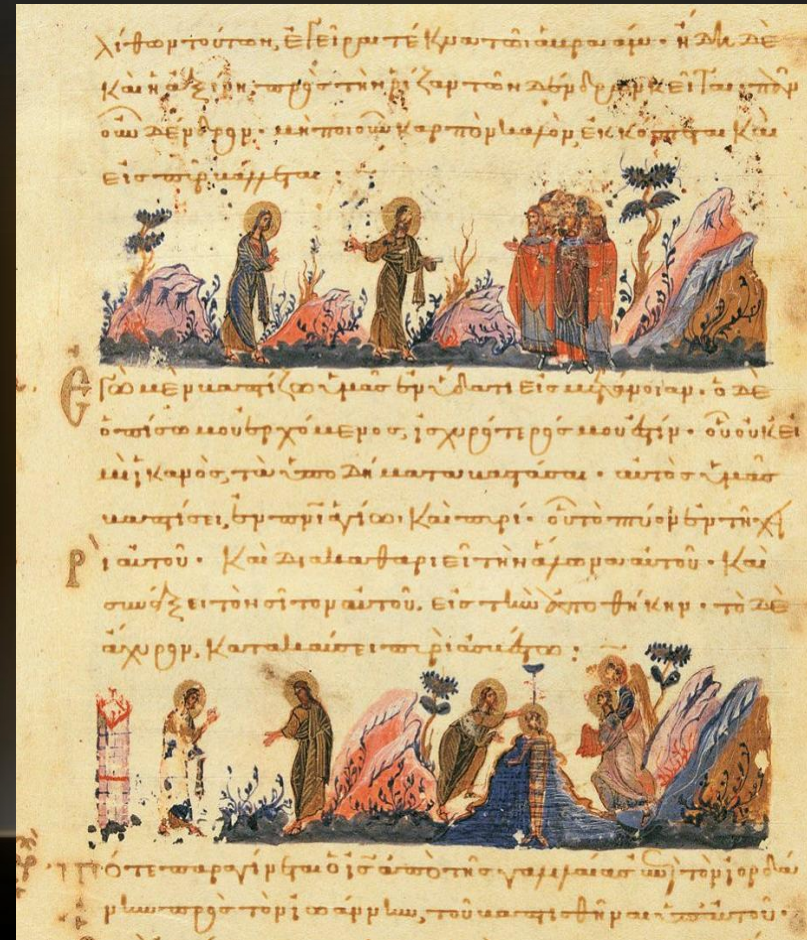 λίθων τούτων, ἐγεῖραι τέκνα τῶ ἀβραάμ· ἤδη δὲ
καὶ ἡ ἀξίνη, πρὸς τὴν ῥίζαν τῶν δένδρων κεῖται· πᾶν
οὖν δένδρον· μὴ ποιοῦν καρπὸν καλὸν, ἐκκόπτεται καὶ
εἰς πῦρ βάλλεται·
Ἐγὼ μὲν βαπτίζω ὑμᾶς ἐν ὕδατι εἰς μετάνοιαν· ὁ δὲ
ὀπίσω μου ἐρχόμενος, ἰσχυρότερός μου ἐστίν· οὗ οὐκ εἰ
μὶ ἱκανὸς, τὰ ὑποδήματα βαστάσαι· αὐτὸς ὑμᾶς
βαπτίσει, ἐν πνι ἁγίω καὶ πυρί· οὗ τὸ πτύον ἐν τῆ χει
ρὶ αὐτοῦ· καὶ διακαθαριεῖ τὴν ἅλωνα αὐτοῦ· καὶ
συνάξει τὸν σῖτον αὐτοῦ, εἰς τὴν ἀποθήκην· τὸ δὲ
ἄχυρον, κατακαύσει πυρὶ ἀσβέστω:
Τότε παραγίνεται ὁ ις ἀπὸ τῆς γαλιλαίας ἐπὶ τὸν ἰορδά
νην πρὸς τὸν ἰωάννην, τοῦ βαπτισθῆναι ὑπ' αὐτοῦ·